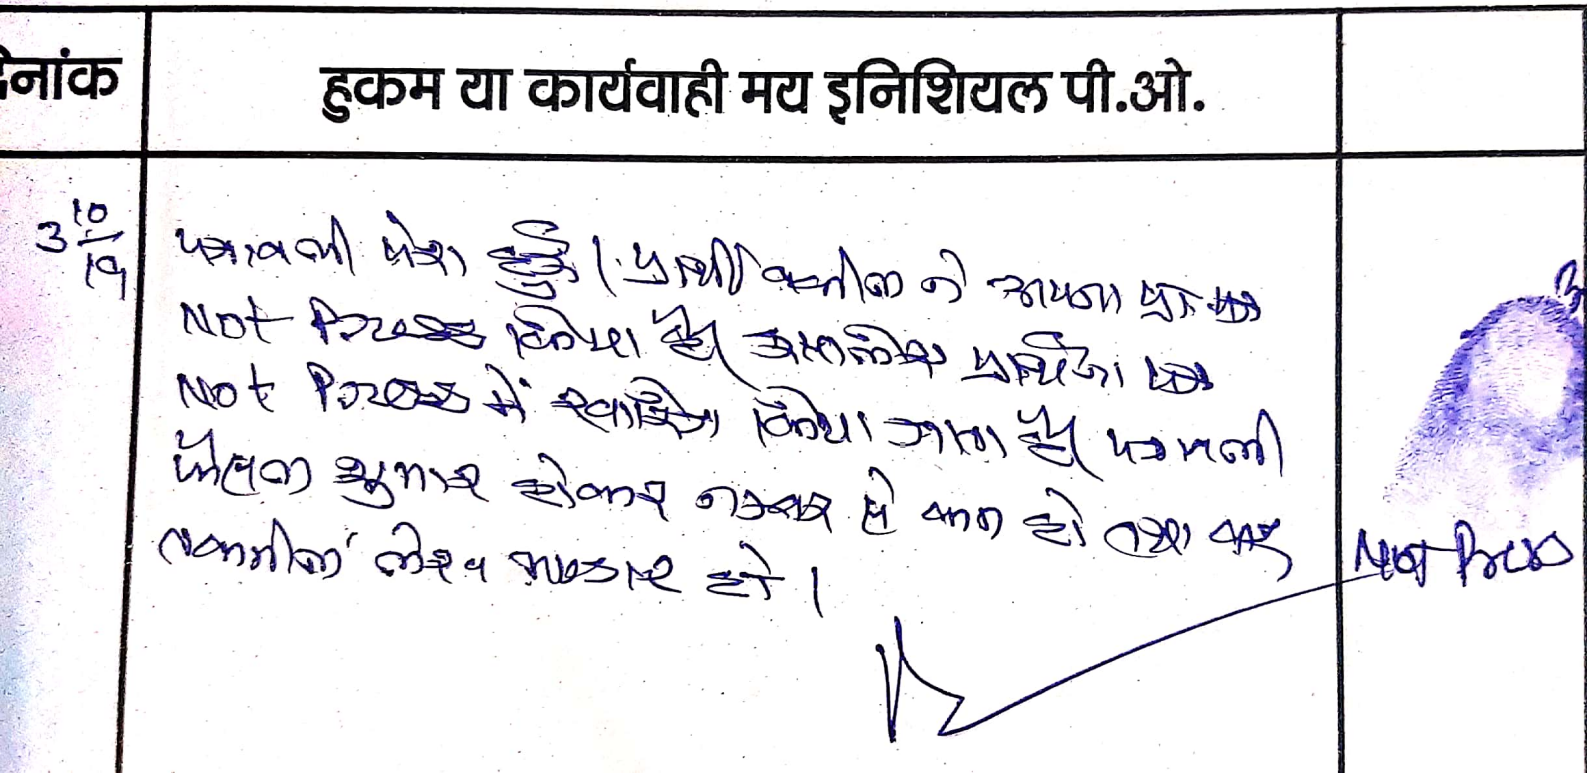 दिनांक हुकम या कार्यवाही मय इनिशियल पी.ओ.
3 10/19 पत्रावली पेश हुई। प्रार्थी वकील ने अपना प्रा. पत्र
Not Press किया है। प्रार्थना पत्र
Not Press में खारिज किया जाता है। पत्रावली
फैसल शुमार होकर नम्बर से कम हो तथा बाद
तकमील लेख भण्डार हो।
Not Press